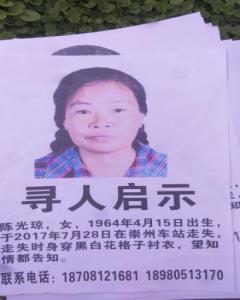 寻人启示
陈光琼，女，1964年4月15日出生，
于2017年7月28日在崇州车站走失，
走失时身穿黑白花格子衬衣，望知
情都告知。
联系电话：18708121681 18980513170